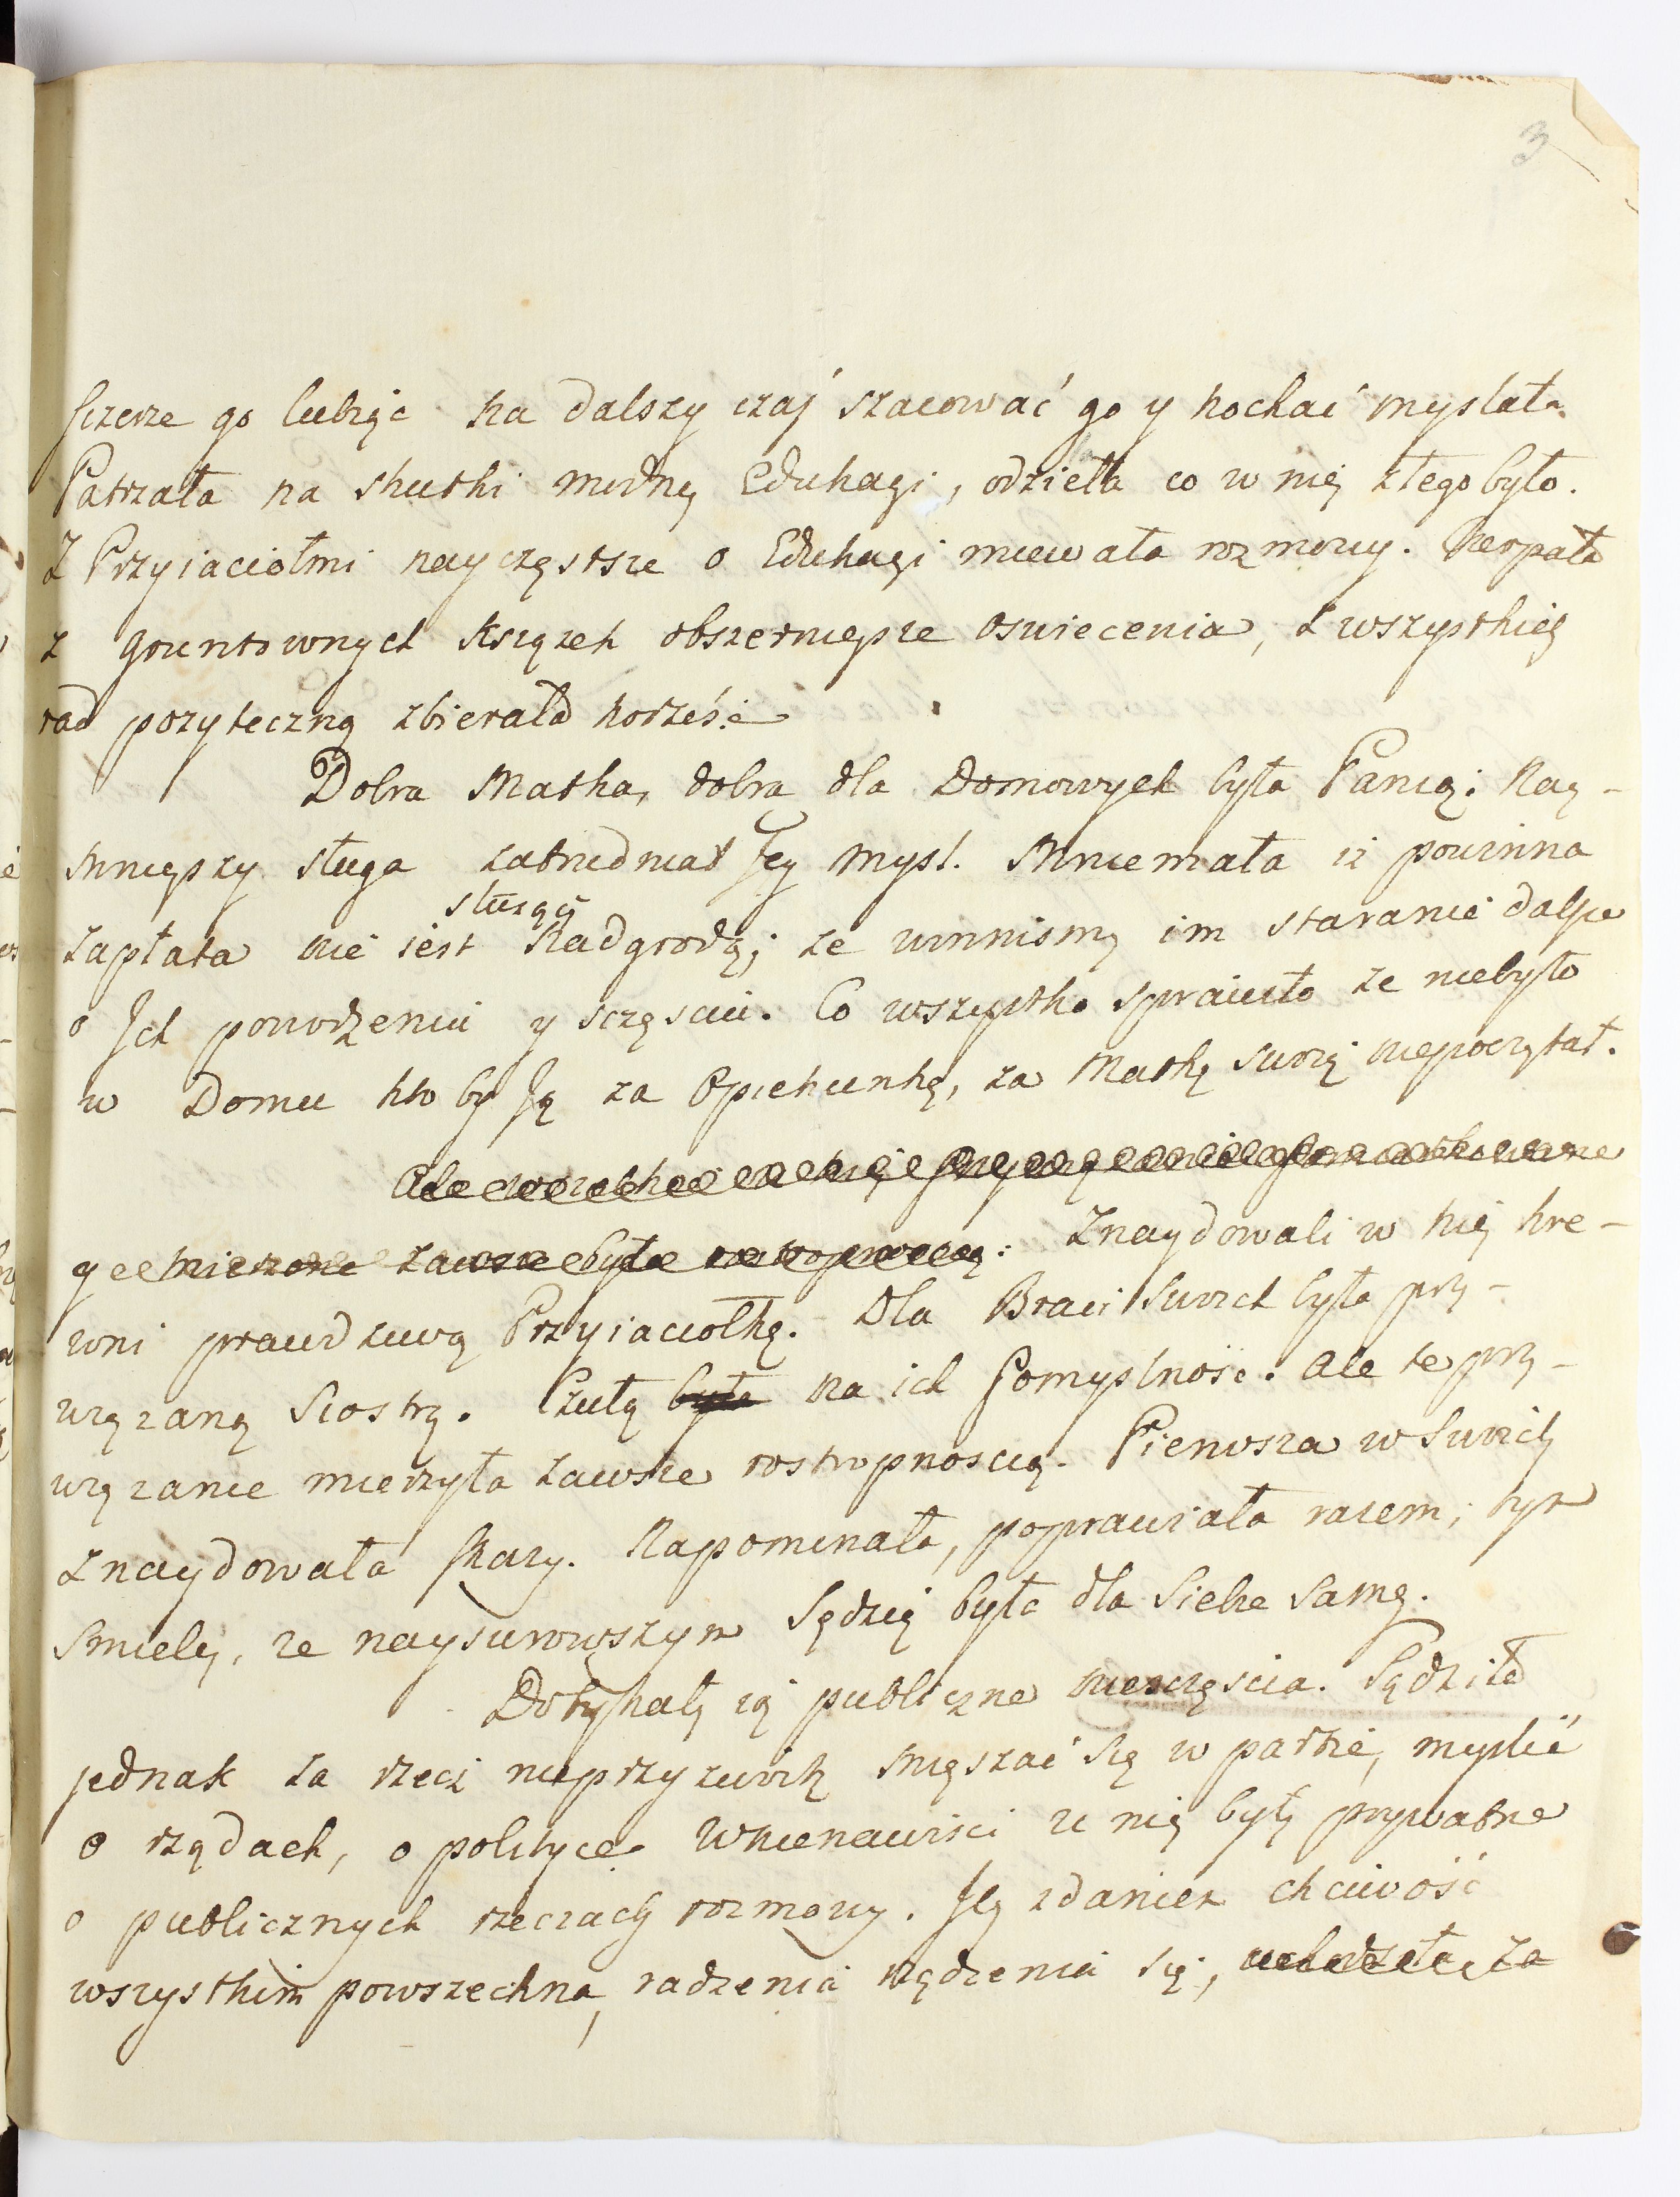 3
sczerze go lubiąc na dalszy czas szacować go y kochać myslała
Patrzała na skutki modney Edukacyi, odzieliła co w niey złego było.
Z Przyiaciołmi nayczęstsze o Edukacyi miewała rozmowy. Czerpała
z gruntownych Książek obszernieysze oswiecenia, z wszystkiey
rad pozyteczną zbierała korzyść
Dobra Matka, dobra dla Domowych była Panią; Nay-
mnieyszy sługa zatrudniał Jey mysl. Mniemała iż powinna
słuszą
zapłata nie iest Nadgrodą; ze winnismy im staranie dalsze
o Ich powodzeniu y sczęsciu. Co wszystko sprawiło ze niebyło
w Domu kto by Ją za Opiekunkę, za Matkę swoię niepoczytał.
Ale
mierzone zawsze było roztropnoscią. Znaydowali w niey kre-
wni prawdziwą Przyiaciołkę. Dla Braci swoich była przy-
wiązaną Siostrą. Czułą była na ich Pomyslność. Ale te przy-
wiązanie mierzyła zawsze rostropnoscią. Pierwsza w Swoich
znaydowała skazy. Napominała, poprawiała razem; tym
smieley, ze naysurowszym Sędzią była dla Siebie Samey.
Dotykały ią publiczne niesczęscia. Sądziła
jednak za rzecz nieprzyzwoitą mięszać się w partie, myslić
o rządach, o polityce. W nienawisci u niey były prywatne
o publicznych rzeczach rozmowy. Jey zdaniem chciwość
wszystkim powszechna, radzenia rządzenia się, za